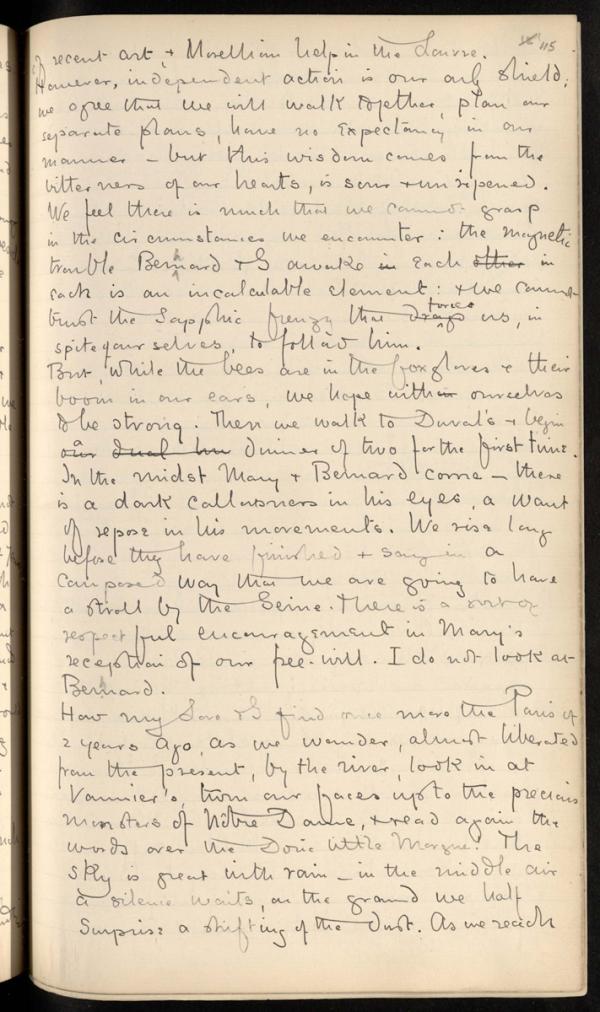 115
of recent art, & Morellian help in the Louvre.
However, independent action is our only shield;
we agree that we will walk together, plan our
separate plans, have no expectancy in our
manner – but this wisdom comes from the
bitterness of our hearts, is sour & unripened.
We feel there is much that we cannot grasp
in the circumstances we encounter: the magnetic
trouble Bernard & I awake in each other in
each is an incalculable element: & we cannot
trust the Sapphic frenzy that drags forces us, in
spite of our selves, to follow him.
But, while the bees are in the foxgloves & their
boom in our ears, we hope within ourselves
to be strong. Then we walk to Duval's & begin
our dual dinner of two for the first time.
In the midst Mary & Bernard come – there
is a dark callousness in his eyes, a want
of repose in his movements. We rise long
before they have finished & say in a
composed way that we are going to have
a stroll by the Seine. There is a sort of
respectful encouragement in Mary's
reception of our free-will. I do not look at
Bernard.
How my Love & I find once more the Paris of
2 years ago, as we wander, almost liberated
from the present, by the river, look in at
Vannier's, turn our faces up to the precious
monsters of Nôtre Dame, & read again the
words over the Doric little Morgue! The
sky is great with rain – in the middle air
a silence waits, on the ground we half
surprise a shifting of the dust. As we reach